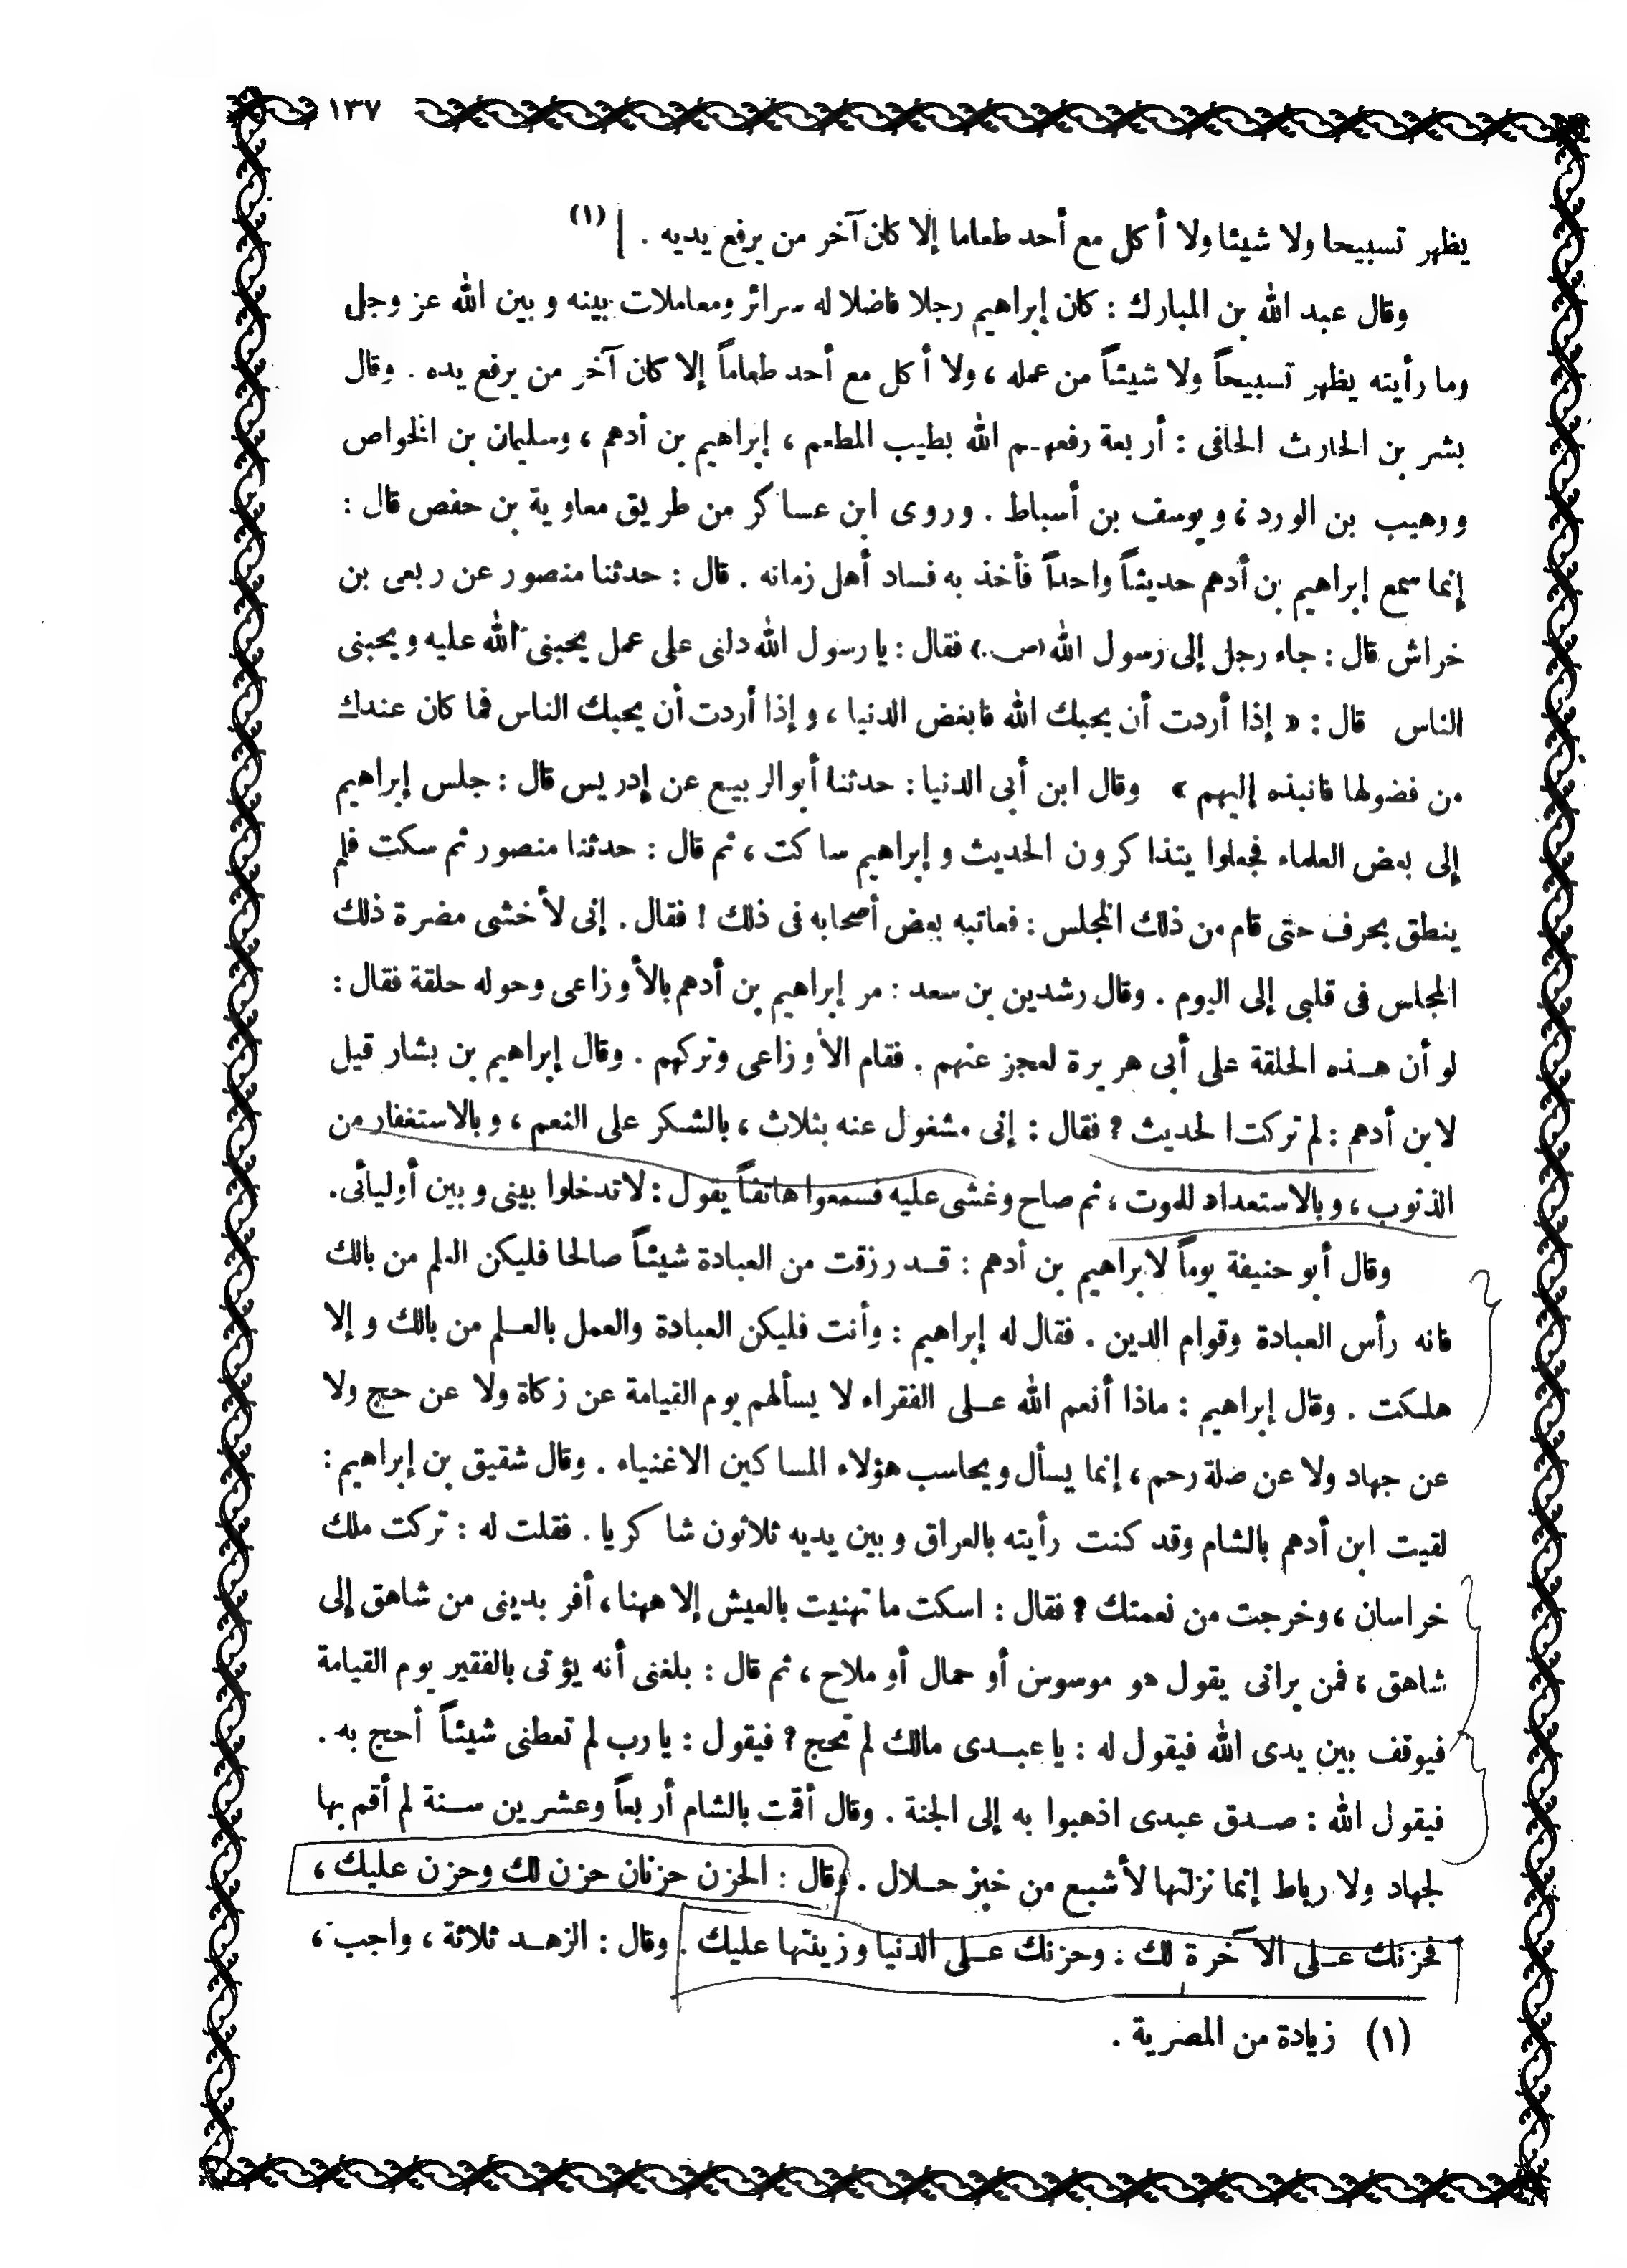 ١٣٧
يظهر تسبيحا ولا شيئا ولا أكل مع أحد طعاما إلا كان آخر من يرفع يديه . | (١)
وقال عبد الله بن المبارك : كان إبراهيم رجلا فاضلا له سرائر ومعاملات بينه وبين الله عز وجل
وما رأيته يظهر تسبيحاً ولا شيئاً من عمله ، ولا أكل مع أحد طعاماً إلا كان آخر من يرفع يده . وقال
بشر بن الحارث الحافى : أربعة رفعهم الله بطيب المطعم ، إبراهيم بن أدهم ، وسليمان بن الخواص
ووهيب بن الورد ، ويوسف بن أسباط . وروى ابن عساكر من طريق معاوية بن حفص قال :
إنما سمع إبراهيم بن أدهم حديثاً واحداً فأخذ به فساد أهل زمانه . قال : حدثنا منصور عن ربعى بن
خراش قال : جاء رجل إلى رسول الله (ص.) فقال : يا رسول الله دلنى على عمل يحبنى الله عليه ويحبنى
الناس قال : « إذا أردت أن يحبك الله فابغض الدنيا ، وإذا أردت أن يحبك الناس فما كان عندك
من فضولها فانبذه إليهم » وقال ابن أبى الدنيا : حدثنا أبو الربيع عن إدريس قال : جلس إبراهيم
إلى بعض العلماء فجعلوا يتذاكرون الحديث وإبراهيم ساكت ، ثم قال : حدثنا منصور ثم سكت فلم
ينطق بحرف حتى قام من ذلك المجلس : فعاتبه بعض أصحابه فى ذلك ! فقال . إنى لأخشى مضرة ذلك
المجلس فى قلبى إلى اليوم . وقال رشدين بن سعد : مر إبراهيم بن أدهم بالأوزاعى وحوله حلقة فقال :
لو أن هذه الحلقة على أبى هريرة لعجز عنهم . فقام الأوزاعى وتركهم . وقال إبراهيم بن بشار قيل
لابن أدهم : لم تركت الحديث ؟ فقال : إنى مشغول عنه بثلاث ، بالشكر على النعم ، وبالاستغفار من
الذنوب ، وبالاستعداد للموت ، ثم صاح وغشى عليه فسمعوا هاتفاً يقول : لا تدخلوا بينى وبين أوليائى .
وقال أبو حنيفة يوماً لابراهيم بن أدهم : قد رزقت من العبادة شيئاً صالحا فليكن العلم من بالك
فانه رأس العبادة وقوام الدين . فقال له إبراهيم : وأنت فليكن العبادة والعمل بالعلم من بالك وإلا
هلكت . وقال إبراهيم : ماذا أنعم الله على الفقراء لا يسألهم يوم القيامة عن زكاة ولا عن حج ولا
عن جهاد ولا عن صلة رحم ، إنما يسأل ويحاسب هؤلاء المساكين الاغنياء . وقال شقيق بن إبراهيم :
لقيت ابن أدهم بالشام وقد كنت رأيته بالعراق وبين يديه ثلاثون شاكريا . فقلت له : تركت ملك
خراسان ، وخرجت من نعمتك ؟ فقال : اسكت ما تهنيت بالعيش إلا ههنا ، أفر بدينى من شاهق إلى
شاهق ، فمن يرانى يقول هو موسوس أو حمال أو ملاح ، ثم قال : بلغنى أنه يؤتى بالفقير يوم القيامة
فيوقف بين يدى الله فيقول له : يا عبدى مالك لم تحج ؟ فيقول : يا رب لم تعطنى شيئاً أحج به .
فيقول الله : صدق عبدى اذهبوا به إلى الجنة . وقال أقمت بالشام أربعاً وعشرين سنة لم أقم بها
لجهاد ولا رباط إنما نزلتها لأشبع من خبز حلال . وقال : الحزن حزنان حزن لك وحزن عليك ،
فحزنك على الآخرة لك : وحزنك على الدنيا وزينتها عليك . وقال : الزهد ثلاثة ، واجب ،
(١) زيادة من المصرية .